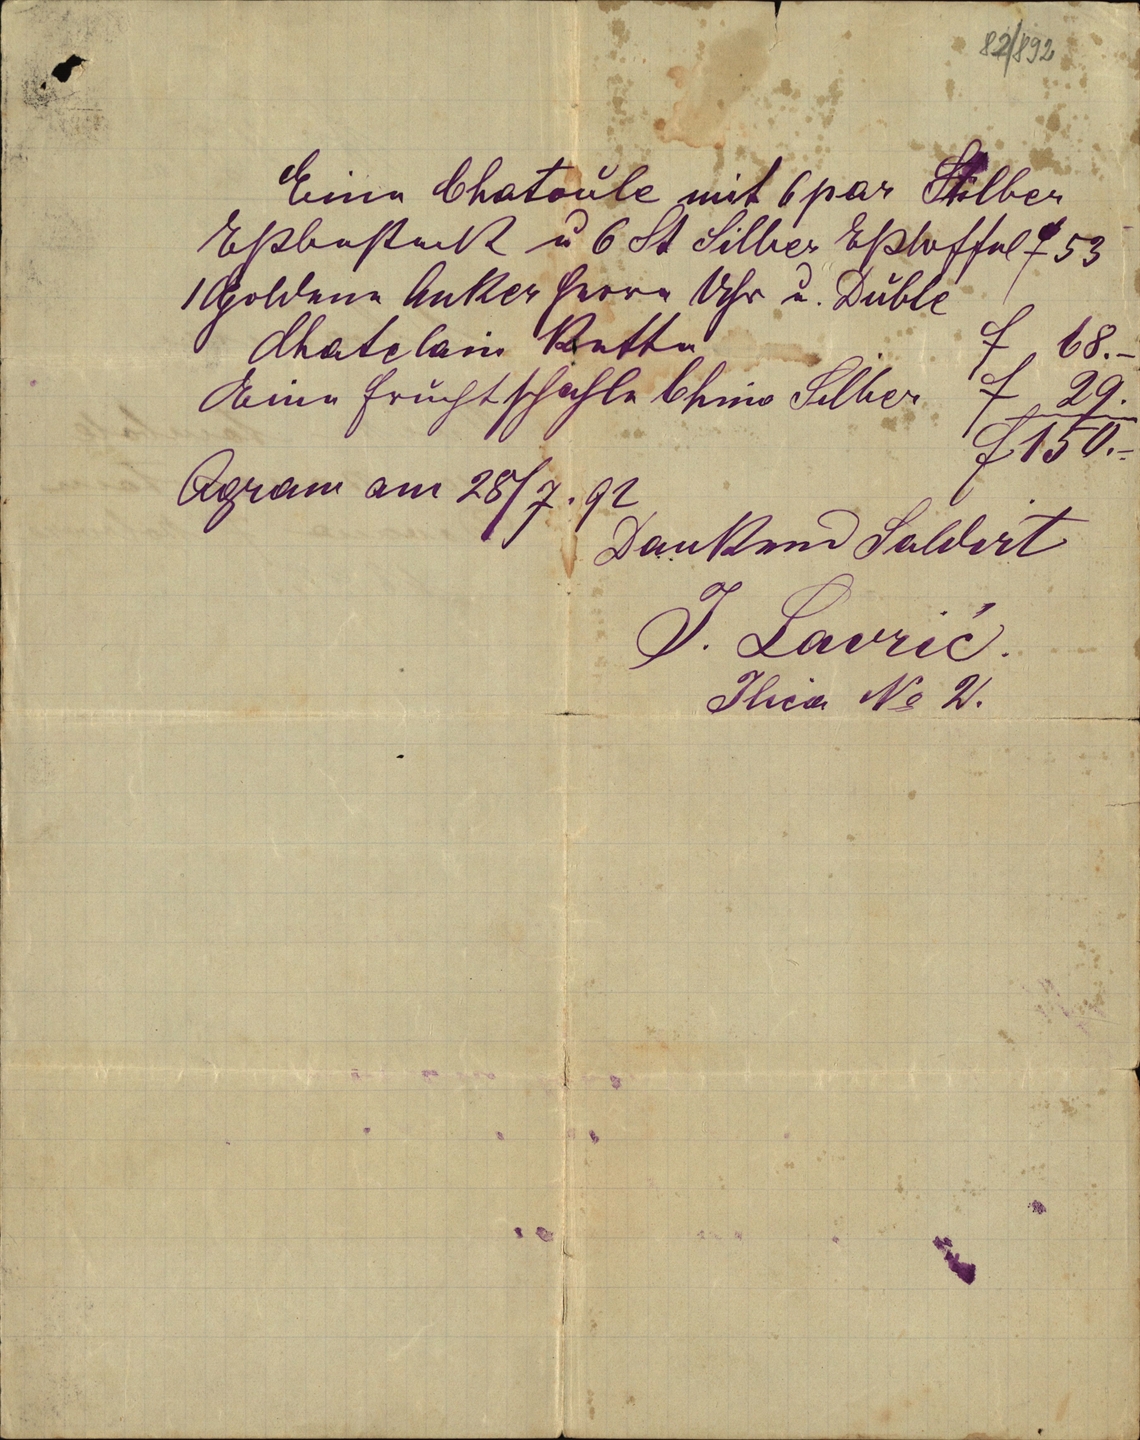 82/892
Eine Chatoule mit 6 par Silber
Eßbesteck u 6 St Silber Eßloffel f 53
1 Goldene Anker Herrn Uhr u. Duble
Chatelain Kette f 68.-
Eine Fruchtschahle China Silber f 29.
f 150.-
Agram am 28/7. 92
Dankend Saldirt
J. Lavrić.
Ilica No 2.